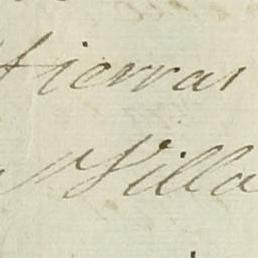 tierras
Villa